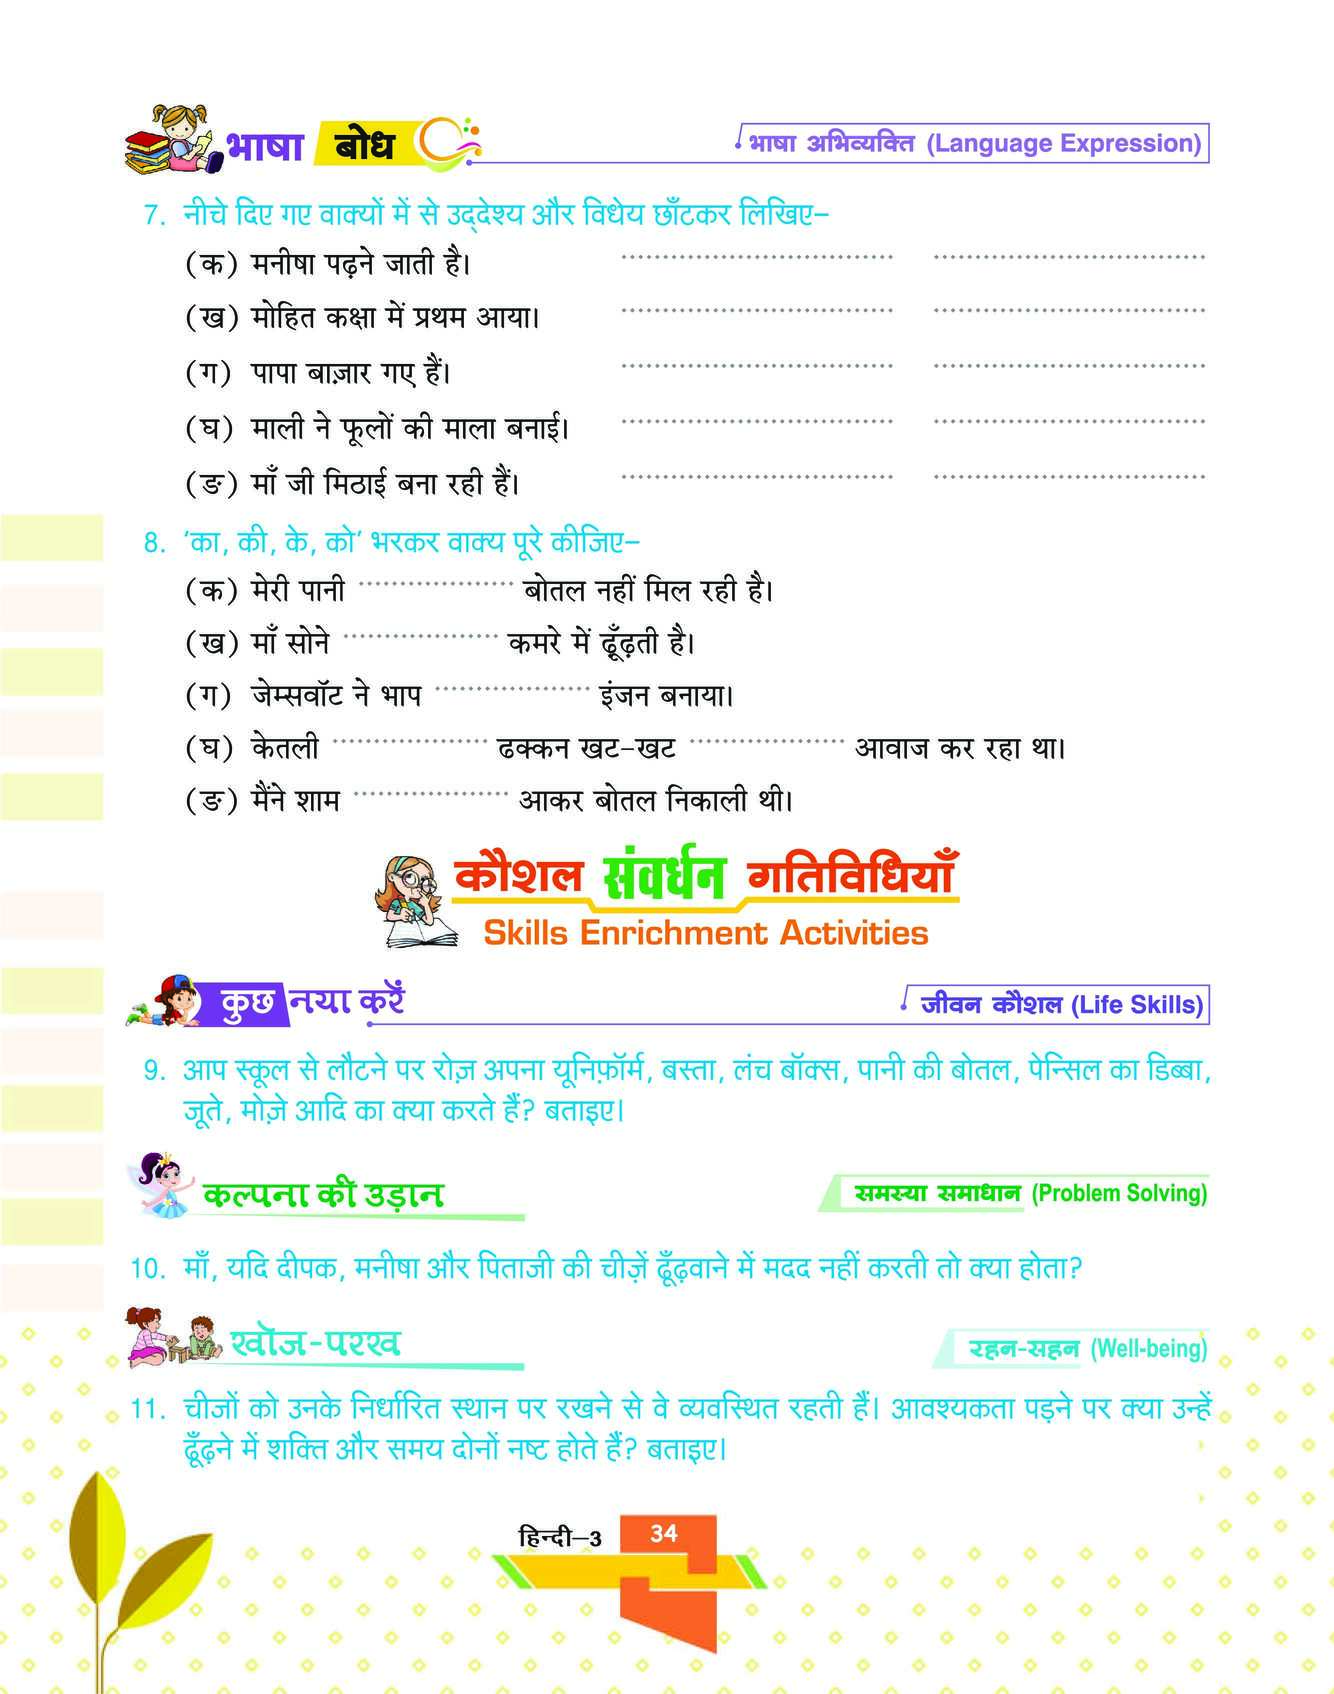 भाषा बोध
भाषा अभिव्यक्ति (Language Expression)
7. नीचे दिए गए वाक्यों में से उद्देश्य और विधेय छाँटकर लिखिए–
(क) मनीषा पढ़ने जाती है। ................................. .................................
(ख) मोहित कक्षा में प्रथम आया। ................................. .................................
(ग) पापा बाज़ार गए हैं। ................................. .................................
(घ) माली ने फूलों की माला बनाई। ................................. .................................
(ङ) माँ जी मिठाई बना रही हैं। ................................. .................................
8. ‘का, की, के, को’ भरकर वाक्य पूरे कीजिए–
(क) मेरी पानी ................... बोतल नहीं मिल रही है।
(ख) माँ सोने ................... कमरे में ढूँढ़ती है।
(ग) जेम्सवॉट ने भाप ................... इंजन बनाया।
(घ) केतली ................... ढक्कन खट–खट ................... आवाज कर रहा था।
(ङ) मैंने शाम ................... आकर बोतल निकाली थी।
कौशल संवर्धन गतिविधियाँ
Skills Enrichment Activities
कुछ नया करें
जीवन कौशल (Life Skills)
9. आप स्कूल से लौटने पर रोज़ अपना यूनिफ़ॉर्म, बस्ता, लंच बॉक्स, पानी की बोतल, पेन्सिल का डिब्बा,
जूते, मोज़े आदि का क्या करते हैं? बताइए।
कल्पना की उड़ान
समस्या समाधान (Problem Solving)
10. माँ, यदि दीपक, मनीषा और पिताजी की चीज़ें ढूँढ़वाने में मदद नहीं करती तो क्या होता?
खोज-परख
रहन-सहन (Well-being)
11. चीजों को उनके निर्धारित स्थान पर रखने से वे व्यवस्थित रहती हैं। आवश्यकता पड़ने पर क्या उन्हें
ढूँढ़ने में शक्ति और समय दोनों नष्ट होते हैं? बताइए।
हिन्दी–3
34